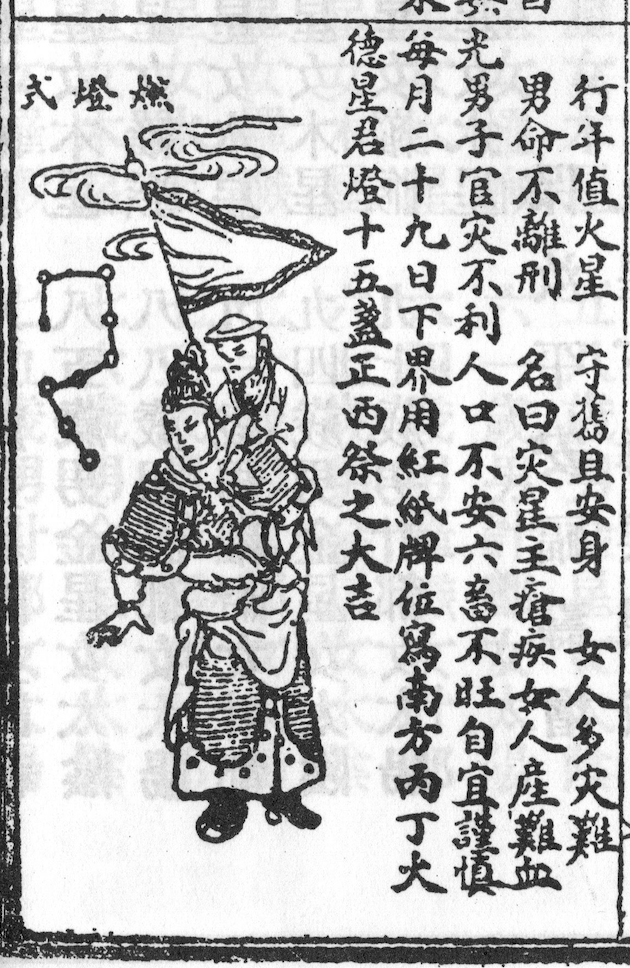 行年值火星 守舊且安身 女人多灾難
男命不離刑 名曰灾星主瘡疾女人産難血
光男子官灾不利人口不安六畜不旺自宜謹慎
每月二十九日下界用紅紙牌位寫南方丙丁火
德星君燈十五盞正西祭之大吉
燃燈式